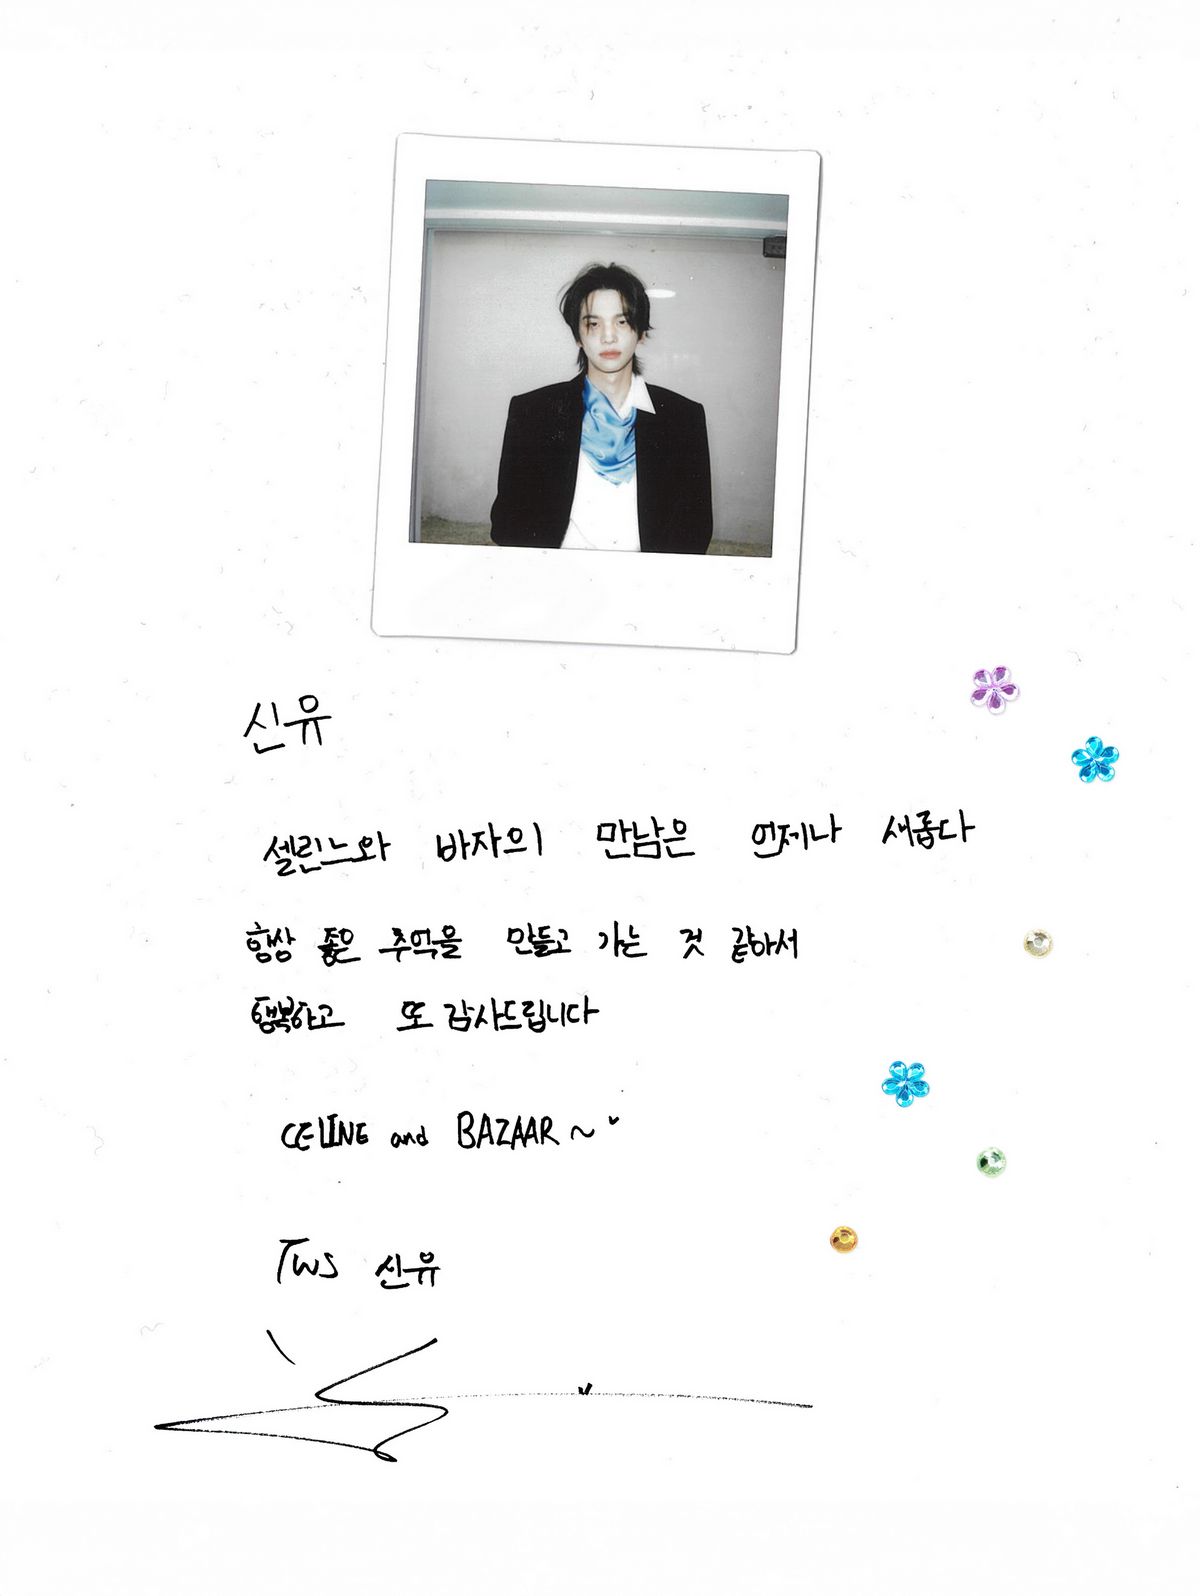 신유
셀린느와 바자의 만남은 언제나 새롭다
항상 좋은 추억을 만들고 가는 것 같아서
행복하고 또 감사드립니다
CELINE and BAZAAR ~
TWS 신유